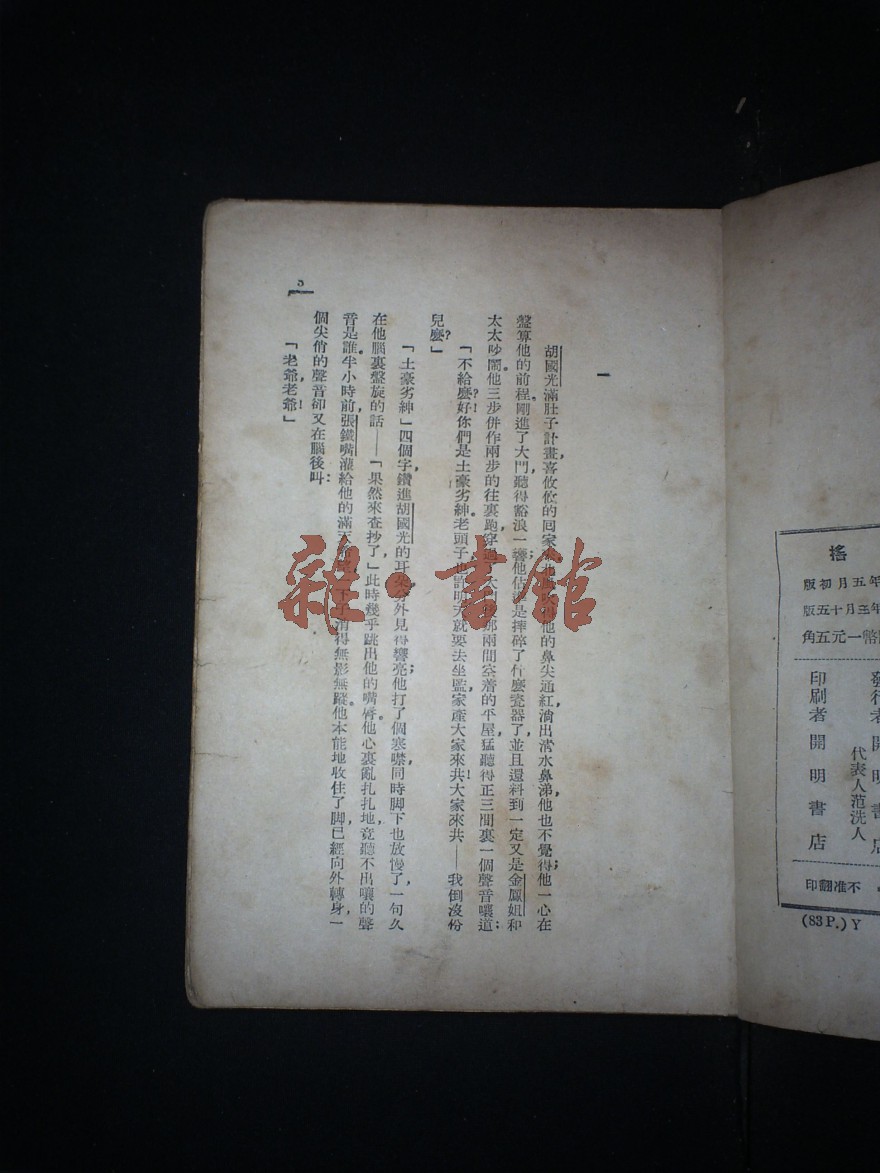 一
胡國光滿肚子計畫,喜攸攸的囘家他的鼻尖通紅,淌出淸水鼻涕,他也不覺得;他一心在
盤算他的前程。剛進了大門,聽得豁浪一聲;他估是摔碎了什麼瓷器了,並且還料到一定又是金鳳姐和
太太吵鬧。他三步併作兩步的往裏跑,穿過了大門兩間空着的平屋,猛聽得正三間裏一個聲音嚷道:
「不給麼?好!你們是土豪劣紳。老頭子也許明天就要去坐監,家產大家來共!大家來共——我倒沒份
兒麼?」
「土豪劣紳」四個字,鑽進胡國光的耳朶,分外見得響亮;他打了個寒噤,同時脚下也放慢了,一句久
在他腦裏盤旋的話——「果然來查抄了,」此時幾乎跳出他的嘴脣。他心裏亂扎扎地,竟聽不出嚷的聲
音是誰。半小時前,張鐵嘴灌給他的滿天消得無影無蹤。他本能地收住了脚,已經向外轉身,一
個尖俏的聲音卻又在腦後叫:
「老爺,老爺!」
3
搖
年五月初版
年三月十五版
幣一元五角
發行者
代表人范洗人
開明書店
印刷者 開明書店
不准翻印
(83P.) Y
雜·書館